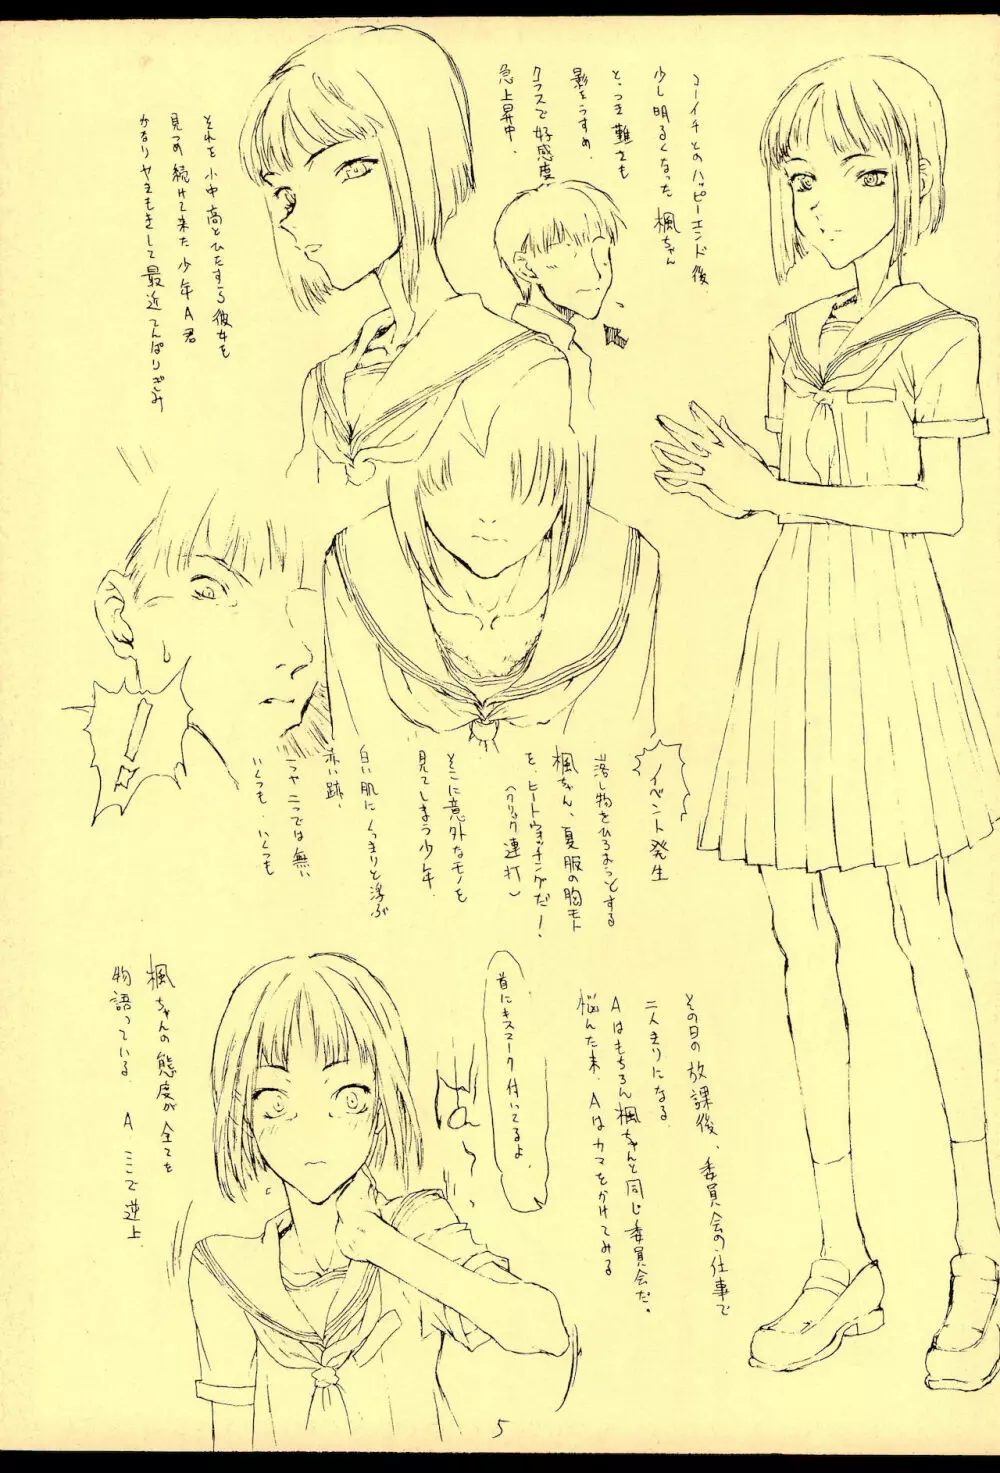 コーイチとのハッピーエンド後
少し明るくなった楓ちゃん
とっつき難さも
影をうすめ、
クラスで好感度
急上昇中、
それを小中高とひたすら彼女を
見つめ続けて来た少年A君
かなりやきもきして最近てんぱりぎみ
イベント発生
落し物をひろおうとする
楓ちゃん、夏服の胸モト
を、ヒートウォッチングだ!
(クリック連打)
そこに意外なモノを
見てしまう少年、
白い肌にくっきりと浮ぶ
赤い跡、
一つや二つでは無い
いくつも、いくつも
!
その日の放課後、委員会の仕事で
二人きりになる
Aはもちろん楓ちゃんと同じ委員会だ。
悩んだ末、Aはカマをかけてみる
首にキスマーク付いてるよ、
ばっ
楓ちゃんの態度が全てを
物語っている、A、ここで逆上
5